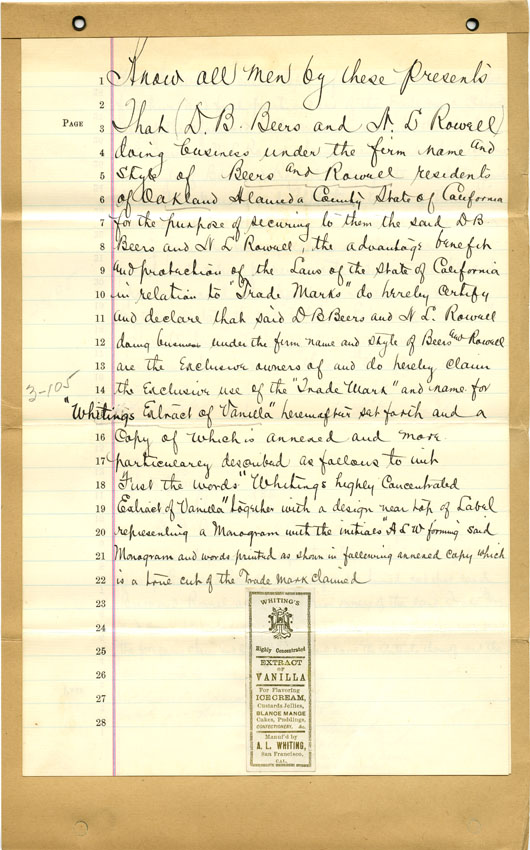 1 Know all Men by these Presents
2
PAGE
3 That (D. B. Beers and N. L Rowell)
4 doing business under the firm name and
5 Style of Beers and Rowell residents
6 of Oakland Alameda County State of California
7 for the purpose of securing to them the said D B.
8 Beers and N L Rowell, the advantage benefit
9 and protection of the Laws of the State of California
10 in relation to "Trade Marks" do hereby certify
11 and declare that said D B Beers and N. L. Rowell
12 doing business under the firm name and style of Beers and Rowell
13 are the Exclusive owners of and do hereby claim
3-105
14 the Exclusive use of the "Trade Mark" and name for
"Whitings Extract of Vanilla" hereinafter set forth and a
16 Copy of which is annexed and more
17 particularey described as follows to wit
18 "Just the words "Whitings highly Concentrated
19 Extract of Vanilla" together with a design near top of Label
20 representing a Monogram with the initials "A L W forming said
21 Monogram and words printed as shown in following annexed copy which
22 is a true cut of the Trade Mark Claimed
23
24
25
26
27
28
WHITING'S
Highly Concentrated
EXTRACT
OF
VANILLA
For Flavoring
ICE CREAM,
Custards, Jellies,
BLANCE MANGE
Cakes, Puddings,
CONFECTIONERY, &c.
Manuf'd by
A. L. WHITING,
San Francisco,
CAL.